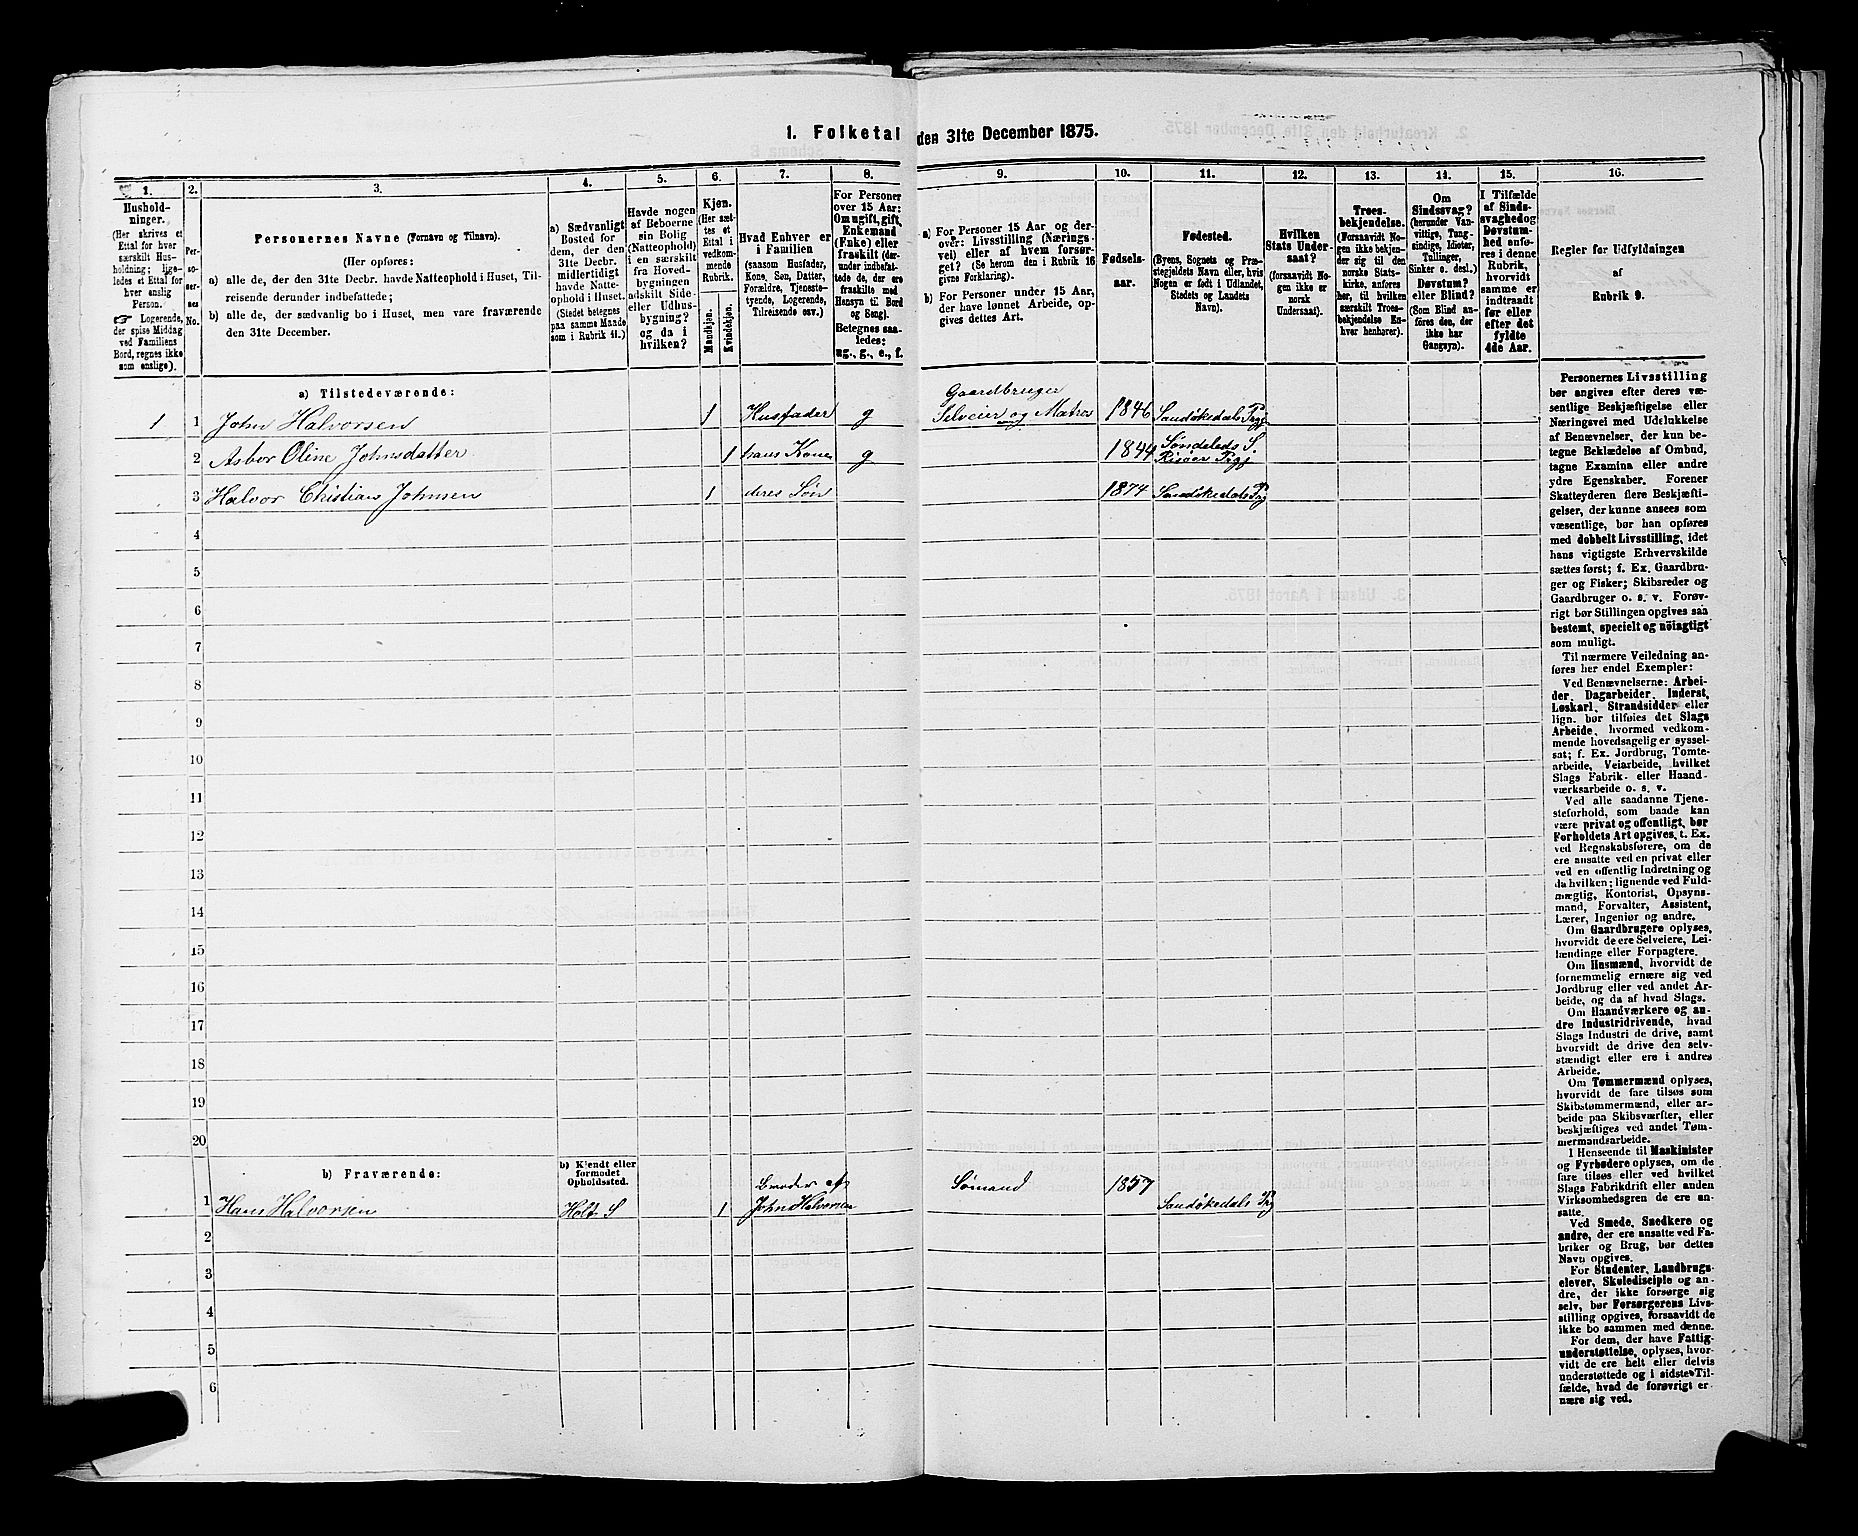 1. Folketal den 31te December 1875.
1.
2.
3.
4.
5.
6.
7.
8.
9.
10.
11.
12.
13.
14.
15.
16.
Hushold-
ninger.
(Her skrives et
Ettal for hver
særskilt Hus-
holdning; lige-
ledes et Ettal for
hver enslig
Person.
☞ Logerende,
der spise Middag
ved Familiens
Bord, regnes ikke
som enslige).
Per-
so-
ner-
nes
No.
Personernes Navne (Fornavn og Tilnavn).
(Her opføres:
a) alle de, der den 31te Decbr. havde Natteophold i Huset, Til-
reisende derunder indbefattede;
b) alle de, der sædvanlig bo i Huset, men vare fraværende
den 31te December.
a) Sædvanligt
Bosted for
dem, der den
31te Decbr.
midlertidigt
havde Natte-
ophold i Huset.
(Stedet betegnes
paa samme Maade
som i Rubrik 11.)
Havde nogen
af Beboerne
sin Bolig
(Natteophold)
i en særskilt
fra Hoved-
bygningen
adskilt Side-
eller Udhus-
bygning?
og da i
hvilken?
Kjøn.
(Her sæt-
tes et
Ettal i
vedkom-
mende
Rubrik.
Mandkjøn.
Kvindekjøn.
Hvad Enhver er
i Familien
(saasom Husfader,
Kone, Søn, Datter,
Forældre, Tjeneste-
tyende, Logerende,
Tilreisende osv.)
For Personer
over 15 Aar:
Om ugift, gift,
Enkemand
(Enke) eller
fraskilt (der-
under indbefat-
tede de, der ere
fraskilte med
Hensyn til Bord
og Seng).
Betegnes saa-
ledes:
ug., g., e., f.
a) For Personer 15 Aar og der-
over: Livsstilling (Nærings-
vei) eller af hvem forsør-
get? (Se herom den i Rubrik 16
givne Forklaring).
b) For Personer under 15 Aar,
der have lønnet Arbeide, op-
gives dettes Art.
Fødsels-
aar.
Fødested.
(Byens, Sognets og Præ-
stegjeldets Navn eller, hvis
Nogen er født i Udlandet,
Stedets og Landets
Navn).
Hvilken
Stats Under-
saat?
(forsaavidt No-
gen ikke er
norsk
Undersaat).
Troes-
bekjendelse.
(Forsaavidt No-
gen ikke bekjen-
der sig til den
norske Stats-
kirke, anføres
her, til hvilken
særskilt Troes-
bekjendelse En-
hver henhører).
Om
Sindssvag?
(herunder Van-
vittige, Tung-
sindige, Idioter,
Tullinger,
Sinker o. desl.)
Døvstum?
eller Blind?
(Som Blind an-
føres den, der
ikke har
Gangsyn).
I Tilfælde
af Sinds-
svaghed og
Døvstum-
hed anfø-
res i denne
Rubrik,
hvorvidt
samme er
indtraadt
før eller
efter det
fyldte
4de Aar.
Regler for Udfyldningen
af
Rubrik 9.
a) Tilstedeværende:
1 1 John Halvorsen 1 Husfader g Gaardbruger
Selveier og Matros 1846 Sandøkedals Prgj
2 Asbor Oline Johnsdatter 1 hans Kone g 1844 Søndeleds S.
Risøer Prgj
3 Halvor Christian Johnsen 1 deres Søn 1874 Sandøkedals Prgj
4
5
6
7
8
9
10
11
12
13
14
15
16
17
18
19
20
b) Fraværende:
b) Kjendt eller
formodet
Opholdssted.
1 Hans Halvorsen Holt S 1 Broder af
John Halvorsen Sømand 1857 Sandøkedals Prgj
2
3
4
5
6
Personernes Livsstilling
bør angives efter deres væ-
sentlige Beskjæftigelse eller
Næringsvei med Udelukkelse
af Benævnelser, der kun be-
tegne Beklædelse af Ombud,
tagne Examina eller andre
ydre Egenskaber. Forener
Skatteyderen flere Beskjæfti-
gelser, der kunne ansees som
væsentlige, bør han opføres
med dobbelt Livsstilling, idet
hans vigtigste Erhvervskilde
sættes først; f. Ex. Gaardbru-
ger og Fisker; Skibsreder og
Gaardbruger o. s. v. Forøv-
rigt bør Stillingen opgives saa
bestemt, specielt og nöiagtigt
som muligt.
Til nærmere Veiledning an-
føres her endel Exempler:
Ved Benævnelserne: Arbei-
der, Dagarbeider, Inderst,
Løskarl, Strandsidder eller
lign. bør tilføies det Slags
Arbeide, hvormed vedkom-
mende hovedsagelig er syssel-
sat; f. Ex. Jordbrug, Tomte-
arbeide, Veiarbeide, hvilket
Slags Fabrik- eller Haand-
værksarbeide o. s. v.
Ved alle saadanne Tjene-
steforhold, som baade kan
være privat og offentligt, bør
Forholdets Art opgives, t. Ex.
ved Regnskabsførere, om de
ere ansatte ved en privat eller
ved en offentlig Indretning og
da hvilken; lignende ved Fuld-
mægtig, Kontorist, Opsyns-
mand, Forvalter, Assistent,
Lærer, Ingeniør og andre.
Om Gaardbrugere oplyses,
hvorvidt de ere Selveiere, Lei-
lændinge eller Forpagtere.
Om Husmænd, hvorvidt de
fornemmelig ernære sig ved
Jordbrug eller ved andet Ar-
beide, og da af hvad Slags.
Om Haandværkere og an-
dre Industridrivende, hvad
Slags Industri de drive, samt
hvorvidt de drive den selv-
stændigt eller ere i andres
Arbeide.
Om Tømmermænd oplyses,
hvorvidt de fare tilsøs som
Skibstømmermænd, eller ar-
beide paa Skibsværfter, eller
beskjæftiges ved andet Tøm-
mermandsarbeide.
I Henseende til Maskinister
og Fyrbødere oplyses, om de
fare tilsøs eller ved hvilket
Slags Fabrikdrift eller anden
Virksomhedsgren de ere an-
satte.
Ved Smede, Snedkere og
andre, der ere ansatte ved Fa-
briker og Brug, bør dettes
Navn opgives.
For Studenter, Landbrugs-
elever, Skoledisciple og an-
dre, der ikke forsørge sig
selv, bør Forsørgerens Livs-
stilling opgives, forsaavidt de
ikke bo sammen med denne.
For dem, der have Fattig-
understøttelse, oplyses, hvor-
vidt de ere helt eller delvis
understøttede og i sidste Til-
fælde, hvad de forøvrigt er-
nære sig ved.